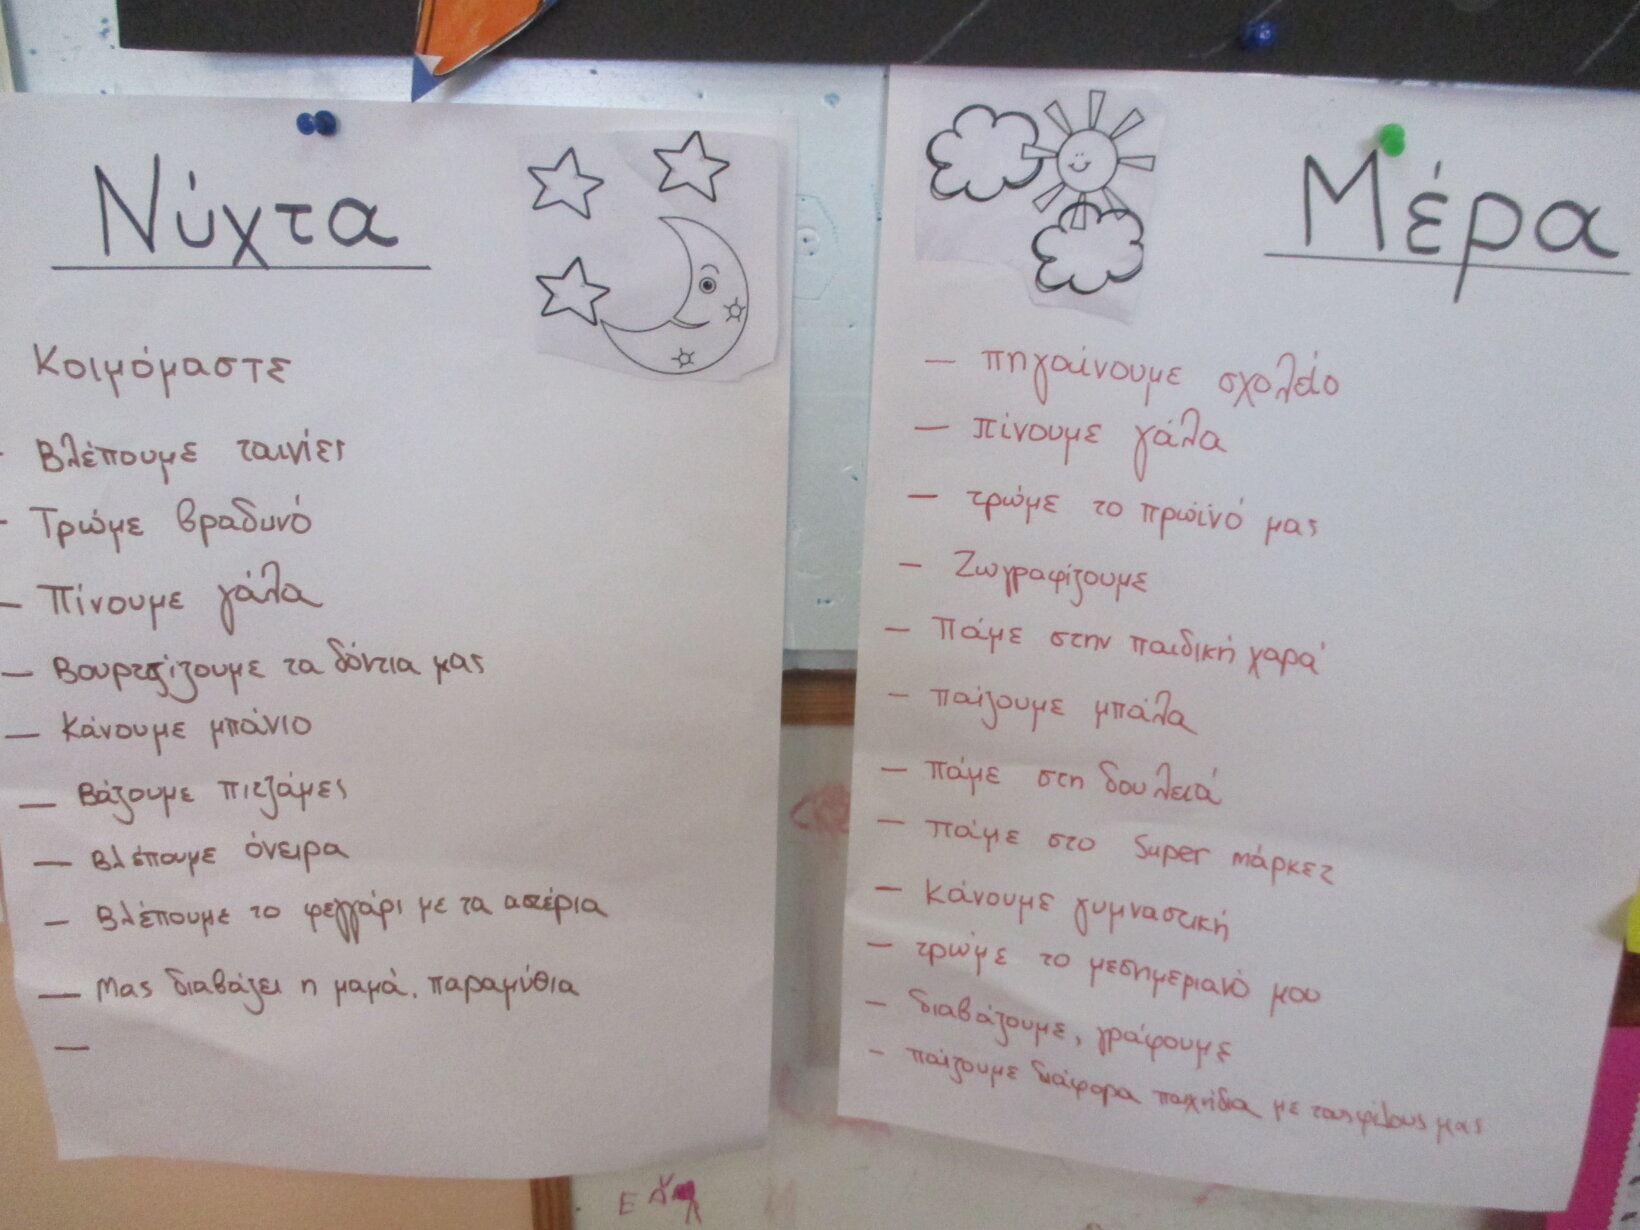 Νύχτα
Κοιμόμαστε
- Βλέπουμε ταινίες
- Τρώμε βραδυνό
- Πίνουμε γάλα
- Βουρτσίζουμε τα δόντια μας
- Κάνουμε μπάνιο
- Βάζουμε πιτζάμες
- Βλέπουμε όνειρα
- Βλέπουμε το φεγγάρι με τα αστέρια
- Μας διαβάζει η μαμά. παραμύθια
-
Μέρα
- πηγαίνουμε σχολείο
- πίνουμε γάλα
- τρώμε το πρωϊνό μας
- Ζωγραφίζουμε
- πάμε στην παιδική χαρά
- παίζουμε μπάλα
- πάμε στη δουλειά
- πάμε στο Super μάρκετ
- Κάνουμε γυμναστική
- τρώμε το μεσημεριανό μου
- διαβάζουμε, γράφουμε
- παίζουμε διάφορα παιχνίδια με τους φίλους μας